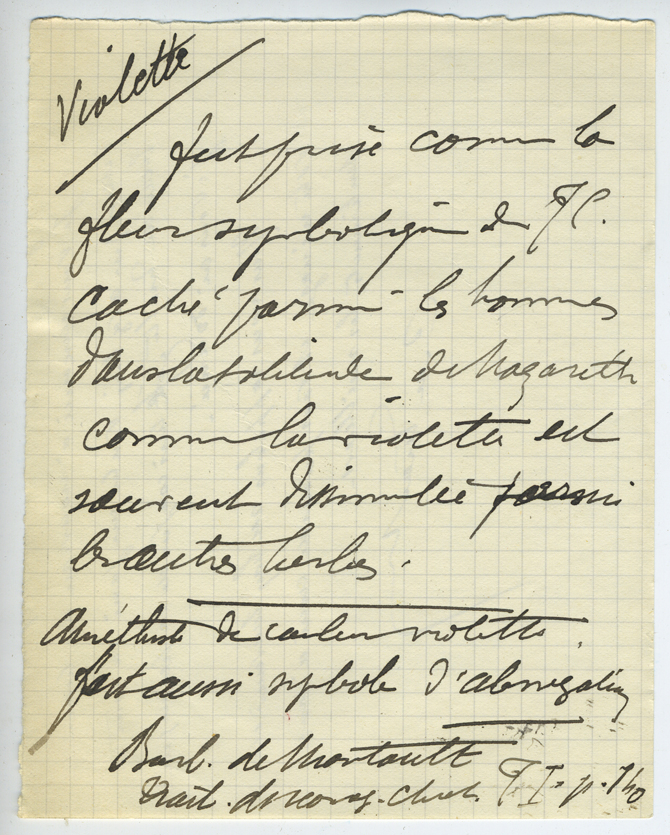 Violette
fut prise comme la
fleur symbolique de J C.
Caché parmi les hommes
dans la solitude de Nazareth
comme la violette est
souvent dissimulée parmi
les autres herbes.
Améthyste de couleur violette.
fut aussi symbole d'abnégation
Barb. de Montault
Trait. d'iconog. Chret. T I. p. 140